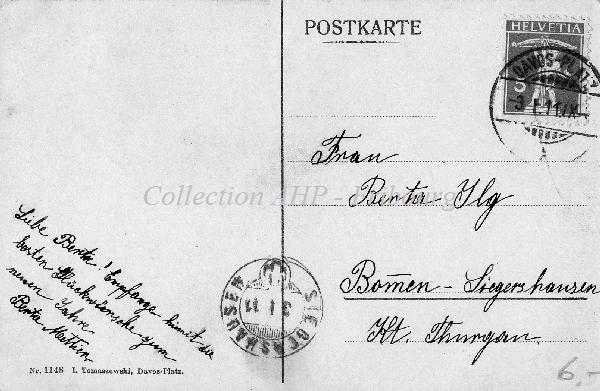 POSTKARTE
HELVETIA
DAVOS-PLATZ
3.I.11.IX
Frau
Berta Ilg
Bommen - Siegershausen
Kt. Thurgau.
Collection AHP - Fribourg
Liebe Berta! Empfange hiemit die
besten Glückwünsche zum
neuen Jahre
Berta
SIEGERSHAUSEN
3.I.11
Nr. 1148 I. Tomaszewski, Davos-Platz.
6,-